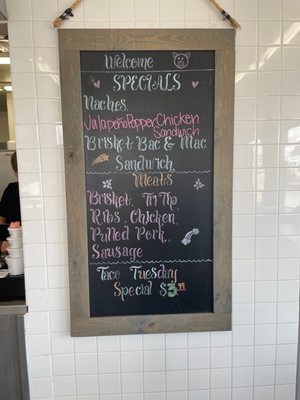 Welcome
SPECIALS
Nachos
Jalapeño Popper Chicken
Sandwich
Brisket Bac & Mac
Sandwich
Meats
Brisket, Tri Tip,
Ribs, Chicken,
Pulled Pork,
Sausage
Taco Tuesday
Special $3.99